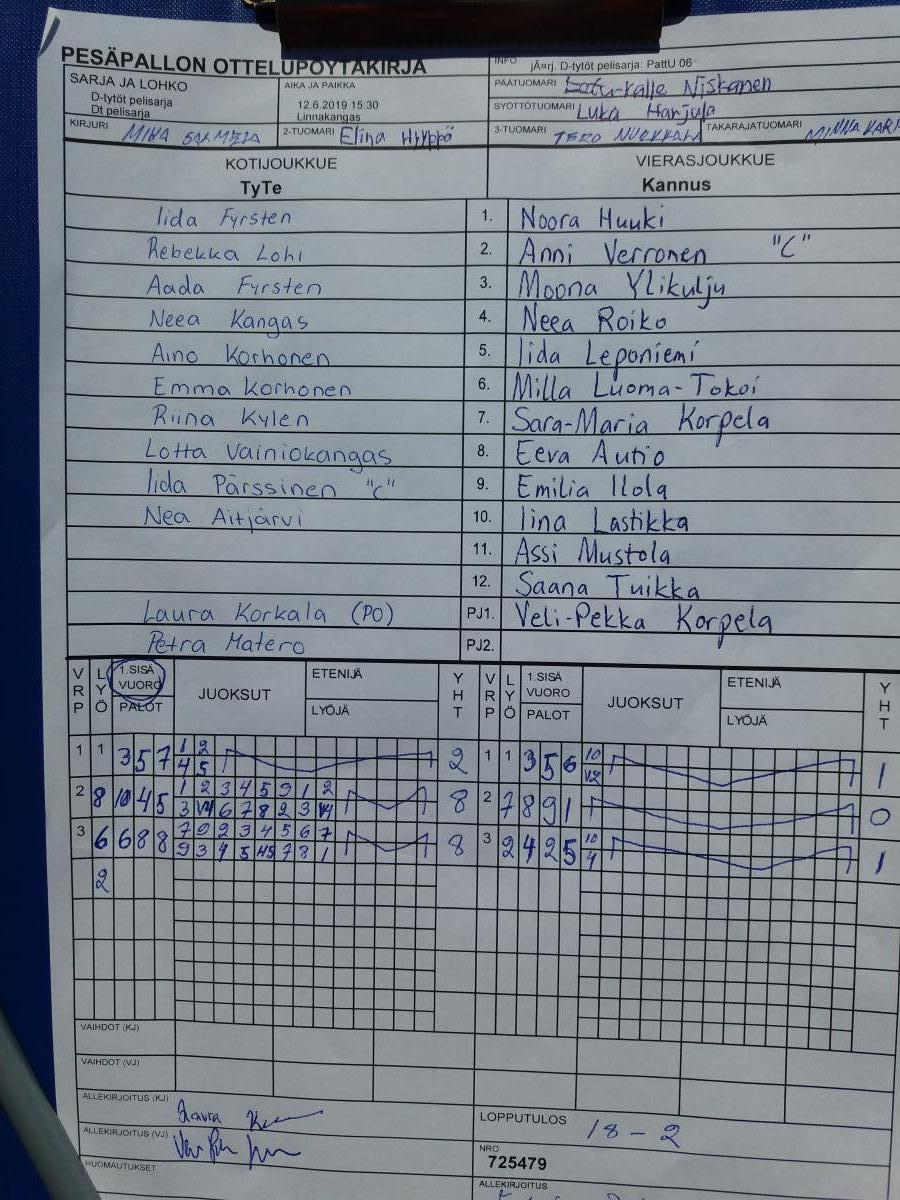 PESÄPALLON OTTELUPÖYTÄKIRJA
INFO jÄärj. D-tytöt pelisarja: PattU 06
SARJA JA LOHKO
D-tytöt pelisarja
Dt pelisarja
AIKA JA PAIKKA
12.6.2019 15:30
Linnakangas
PÄÄTUOMARI Niskanen
SYÖTTÖTUOMARI Luka Harjula
KIRJURI MIKA
2-TUOMARI Elina Hyyppö
3-TUOMARI TERO
TAKARAJATUOMARI MINNA
KOTIJOUKKUE VIERASJOUKKUE
TyTe Kannus
Iida Fyrsten 1. Noora Huuki
Rebekka Lohi 2. Anni Verronen "C"
Aada Fyrsten 3. Moona Ylikulju
Neea Kangas 4. Neea Roiko
Aino Korhonen 5. Iida Leponiemi
Emma Korhonen 6. Milla Luoma-Tokoi
Riina Kylen 7. Sara-Maria Korpela
Lotta Vainiokangas 8. Eeva Autio
Iida Pärssinen "C" 9. Emilia Ilola
Nea Aitjärvi 10. Iina Lastikka
11. Assi Mustola
12. Saana Tuikka
Laura Korkala (PO) PJ1. Veli-Pekka Korpela
Petra Matero PJ2.
VRP LYÖ 1.SISÄ VUORO PALOT JUOKSUT ETENIJÄ LYÖJÄ YHT VRP LYÖ 1.SISÄ VUORO PALOT JUOKSUT ETENIJÄ LYÖJÄ YHT
1 1 3 5 7 1 2 2 1 1 3 5 6 10 1
4 5 12
2 8 10 4 5 1 2 3 4 5 9 1 2 8 2 7 8 9 1 0
3 6 7 8 2 3
3 6 6 8 8 7 9 2 3 4 5 6 7 8 3 2 4 2 5 10 1
9 3 4 5 7 8 1 4
2
VAIHDOT (KJ)
VAIHDOT (VJ)
ALLEKIRJOITUS (KJ)
ALLEKIRJOITUS (VJ)
LOPPUTULOS 18 - 2
NRO
725479
HUOMAUTUKSET
ALLEKIRJOITUS